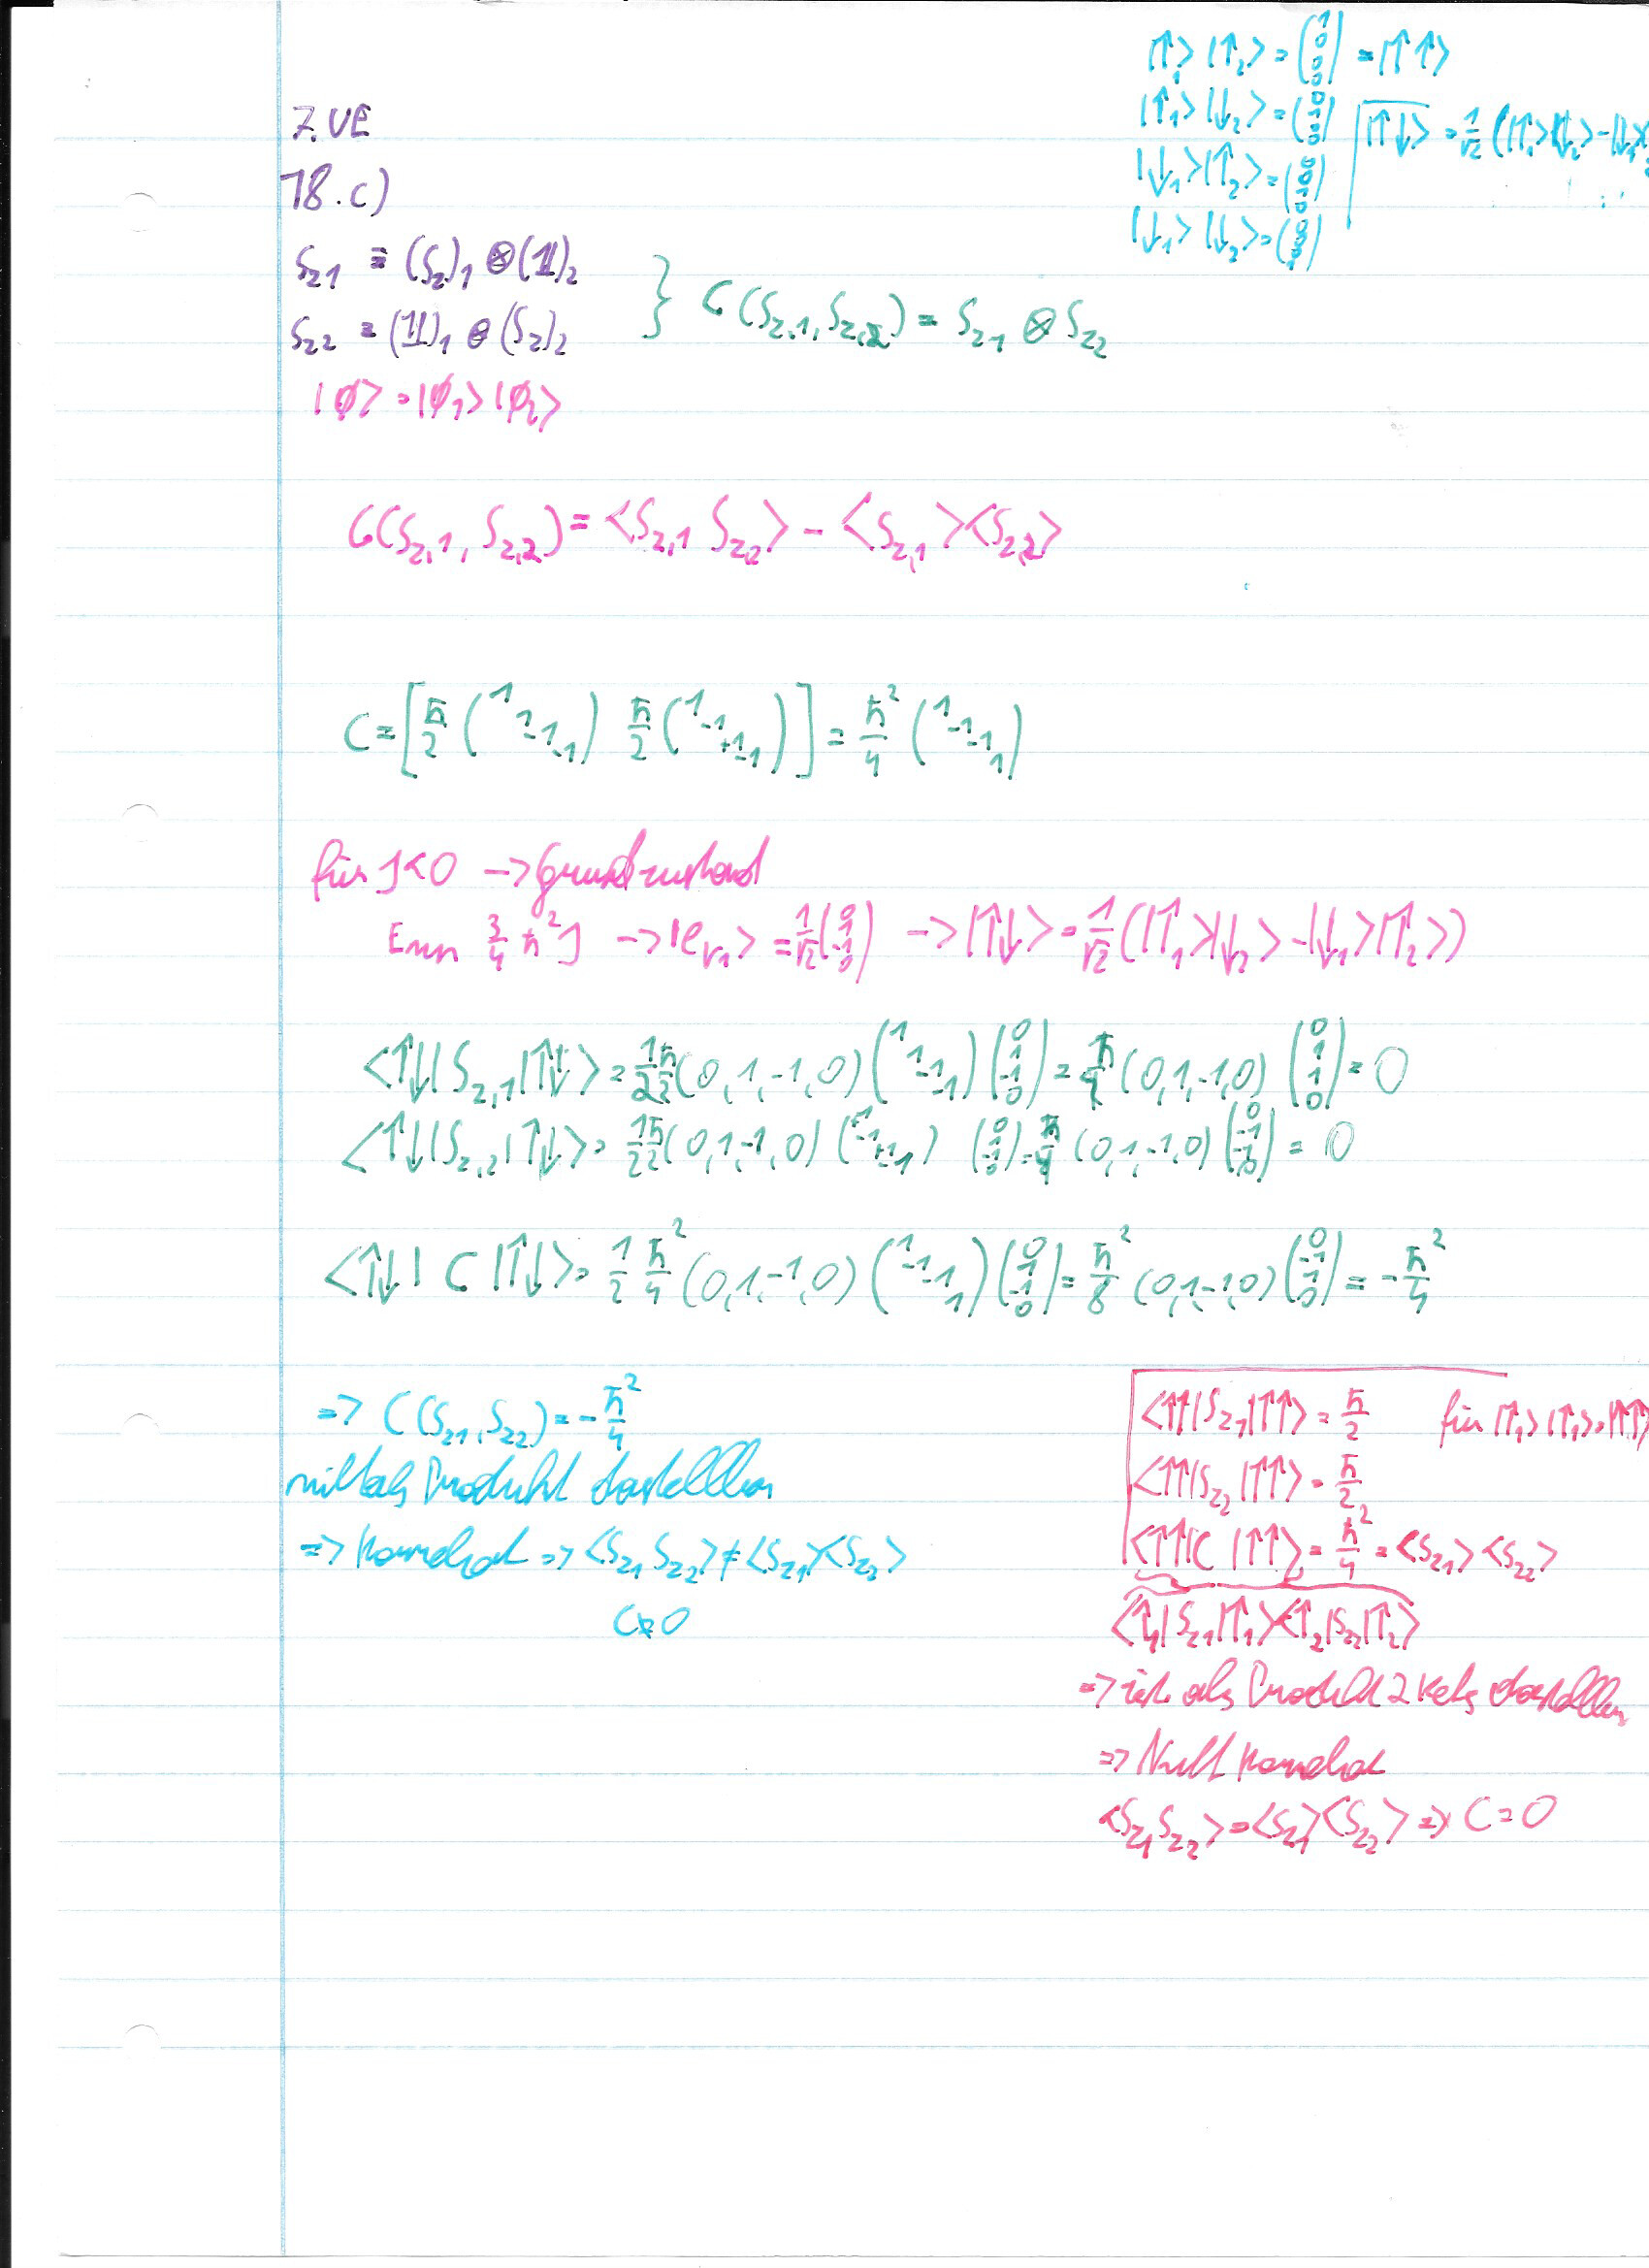 |↑₁> |↑₂> = (1 0 0 0) = |↑↑>
|↑₁> |↓₂> = (0 1 0 0)
|↑↓> = 1/√2 (|↑₁>|↓₂> - |↓₁>
|↓₁>|↑₂> = (0 0 1 0)
|↓₁> |↓₂> = (0 0 0 1)
7. UE
18. c)
S_z1 ≡ (S_z)₁ ⊗ (𝟙)₂
S_z2 ≡ (𝟙)₁ ⊗ (S_z)₂
} C(S_z,1, S_z,2) = S_z1 ⊗ S_z2
|ϕ> = |ϕ₁> |ϕ₂>
C(S_z,1, S_z,2) = <S_z,1 S_z,2> - <S_z,1><S_z,2>
C = [ħ/2 (1 1 -1 -1) ħ/2 (1 -1 +1 -1)] = ħ²/4 (1 -1 -1 1)
für J<0 -> Grundzustand
3/4 ħ² J -> |e_v1> = 1/√2 (0 1 -1 0) -> |↑↓> = 1/√2 (|↑₁>|↓₂> - |↓₁>|↑₂>)
<↑↓| S_z,1 |↑↓> = 1/2 ħ/2 (0,1,-1,0) (1 1 -1 -1) (0 1 -1 0) = ħ/4 (0,1,-1,0) (0 1 1 0) = 0
<↑↓| S_z,2 |↑↓> = 1/2 ħ/2 (0,1,-1,0) (1 -1 +1 -1) (0 1 -1 0) = ħ/4 (0,1,-1,0) (0 -1 -1 0) = 0
<↑↓| C |↑↓> = 1/2 ħ²/4 (0,1,-1,0) (1 -1 -1 1) (0 1 -1 0) = ħ²/8 (0,1,-1,0) (0 -1 1 0) = -ħ²/4
=> C(S_z1, S_z2) = -ħ²/4
nicht als Produkt darstellbar
=> korreliert => <S_z1 S_z2> ≠ <S_z1><S_z2>
C≠0
<↑↑|S_z1|↑↑> = ħ/2 für |↑₁>|↑₂> = |↑↑>
<↑↑|S_z2|↑↑> = ħ/2
<↑↑|C|↑↑> = ħ²/4 = <S_z1><S_z2>
<↑₁|S_z1|↑₁><↑₂|S_z2|↑₂>
=> ist als Produkt 2 Kets darstellbar
=> Nicht korreliert
<S_z1 S_z2> = <S_z1><S_z2> => C = 0